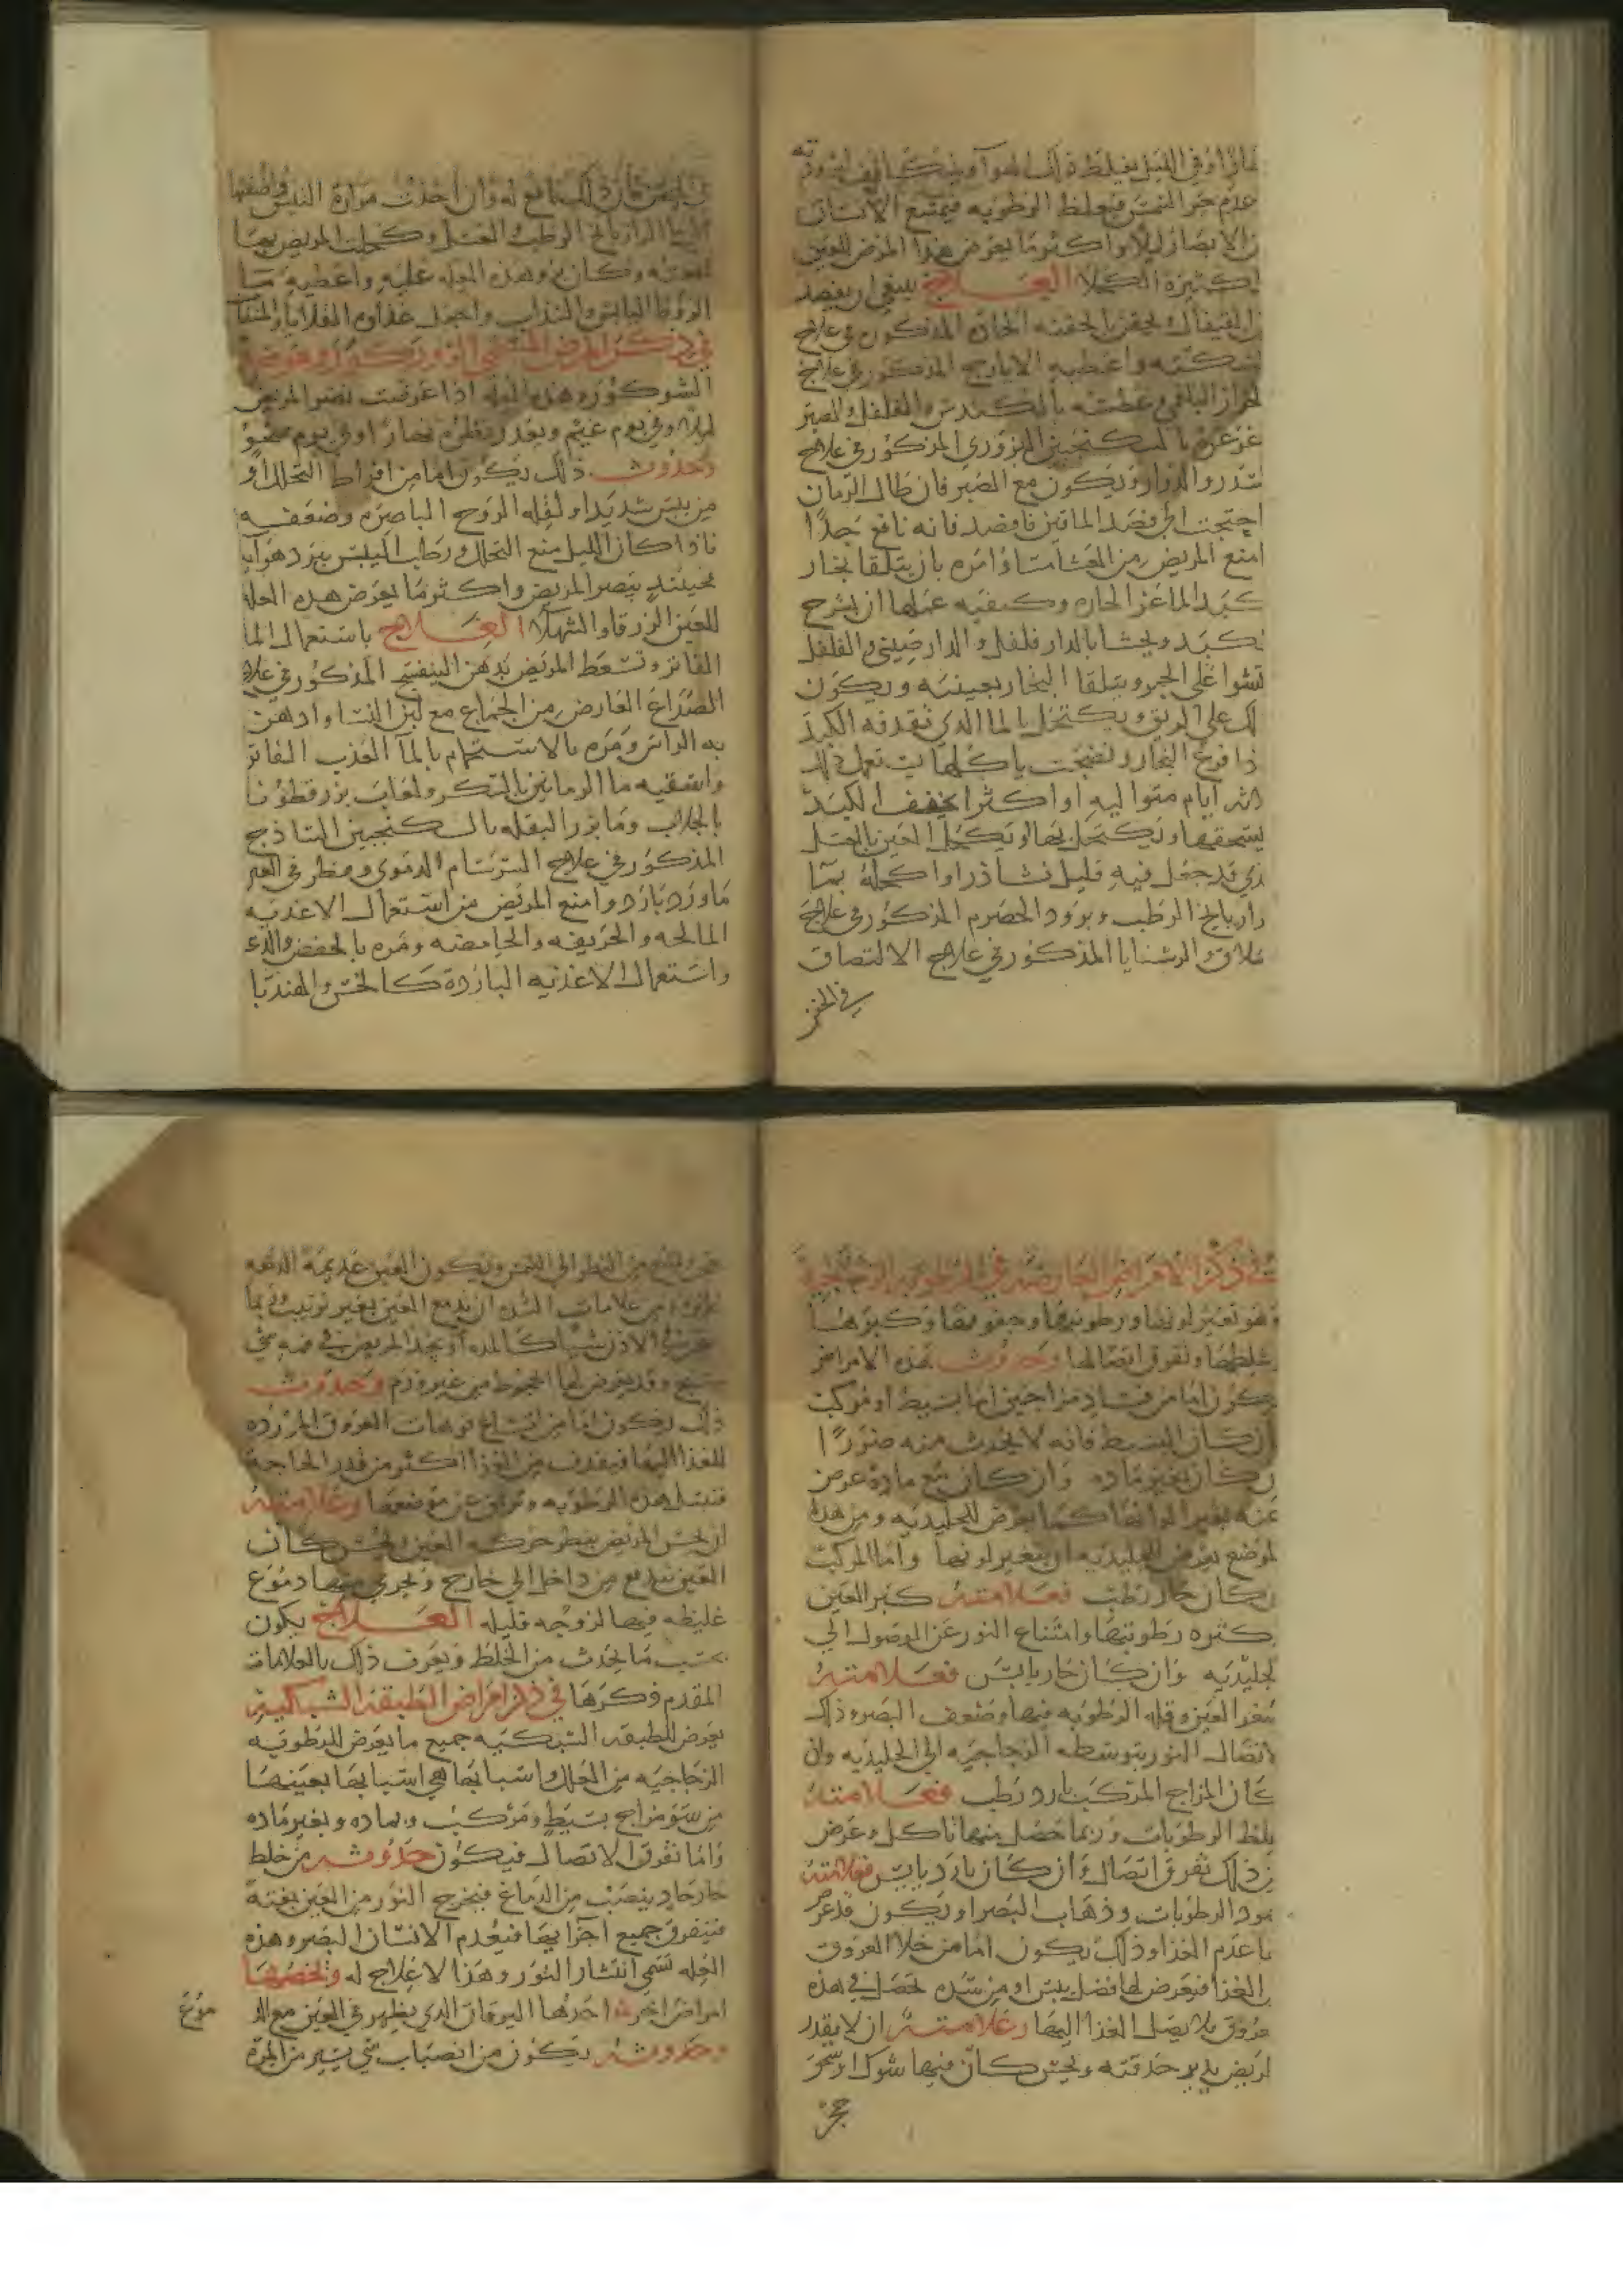 عدم حر الشمس فيغلظ الرطوبه فيمنع الانسان
الابصار ليلا واكثر ما يعرض هذا المرض للعين
الكحلا العلاج ينبغي ان يفصد
القيفال ويحقن بالحقنه الحاده المذكون في علاج
السكته واعطيه الايارج المذكور في علاج
وعطسه بالكندس والفلفل والصبر
غرغره بالسكنجبين البزوري المذكور في علاج
السدر والدوار ويكون مع الصبر فان طال الزمان
احتجت الى فصد الماقين فافصد فانه نافع جدا
امنع المريض من العشا مسا وامره بان يتلقا بخار
كبد الماعز الحاره وكيفيه عملها ان يشرح
كبد ويحشا بالدار فلفل والدار صيني والفلفل
تشوا على الجمر ويتلقا البخار بعينيه ويكون
على الريق ويكتحل بالما الذي تقدفه الكبد
فرغ البخار ونضجت ياكلها يستعمل ذلك
ايام متواليه او اكثر او يجفف الكبد
يستحقها ويكتحل بها او يكتحل العين بالعسل
قد جعل فيه قليل نشاذر او اكحله بما
الرطب وبرود الحصرم المذكور في علاج
المذكور في علاج الالتصاق
في الجفن
الرازيانج الرطب والعسل وكحلت المريض بها
وكان برو هذه العله عليه واعطيه ما
الزوفا اليابس والسذاب واجعل غذاوه القلايا
في ذكر المرض
الشوكور وهذه العله اذا عرضت نضر المريض
وفي يوم غيم ويقدر ينظر نهارا وفي يوم صحو
وحدوث ذلك يكون اما من افراط التحلل او
من يبس شديد او لقله الروح الباصره وضعفه
فاذا كان الليل منع التحلل ورطب اليبس ببرد هوايه
فحينئذ يبصر المريض واكثر ما يعرض هذه العله
للعين الزرقا والشهلا العلاج باستعمال الما
الفاتر وتسعط المريض بدهن البنفسج المذكور في علاج
الصداع العارض من الجماع مع لبن النسا وادهن
به الراس ومره بالاستحمام بالما العذب الفاتر
واسقيه ما الرمانين بالسكر ولعاب بزر قطونا
بالجلاب وما بزر البقله بالسكنجبين الساذج
المذكور في علاج السرسام الدموي وقطر في العين
ماورد بارد وامنع المريض من استعمال الاغذيه
المالحه والحريفه والحامضه ومره بالخفض والدعه
واستعمال الاغذيه البارده كالخس والهندبا
في ذكر الامراض العارضه في الرطوبه الزجاجيه
وهو تغير لونها ورطوبتها وجفوفها وكبرها
وغلظها وتفرق اتصالها وحدوث هذه الامراض
يكون اما من فساد مزاجين اما بسيط او مركب
ان كان البسيط فانه لا يحدث منه ضررا
ان كان بغير ماده وان كان مع ماده عرض
عنه تغير الوانها كما يعرض للجليديه ومن هذا
الموضع يعرض للجليديه ان يتغير لونها واما المركب
ان كان حار رطب فعلامته كبر العين
كثره رطوبتها وامتناع النور عن الوصول الي
الجليديه وان كان حار يابس فعلامته
صغر العين وقله الرطوبه فيها وضعف البصر وذلك
لاتصال النور بتوسطه الزجاجيه الي الجليديه وان
كان المزاج المركب بارد رطب فعلامته
غلظ الرطوبات وربما حصل منها تاكل وعرض
من ذلك تفرق اتصال وان كان بارد يابس فعلامته
جمود الرطوبات وذهاب البصر او يكون قد عرض
لها عدم الغذا وذلك يكون اما من خلا العروق
من الغذا فيعرض لها فضل يبس او من سده تحصل في هذه
العروق فلا يصل الغذا اليها وعلامته ان لا يقدر
المريض يدير حدقته ويحس كان فيها شوك او
حجر
ويمنع من النظر الي الشمس ويكون العين عديمه الدمعه
ومن علامات السده ان تدمع العين بغير ترتيب وربما
عرض في الاذن شبيها كالمده او يجد المريض في فمه شي
وقد يعرض لها الجحوظ من غير ورم وحدوث
ذلك يكون اما من اتساع فوهات العروق المورده
للغذا اليها فيقذف من الغذا اكثر من قدر الحاجه
فتبتل هذه الرطوبه وتزلق عن موضعها وعلامته
ان يحس المريض ببطو حركه العين ويحس كان
العين تندفع من داخل الي خارج ويجري منها دموع
غليظه فيها لزوجه قليله العلاج يكون
بحسب ما يحدث من الخلط ويعرف ذلك بالعلامات
المقدم ذكرها في ذكر امراض الطبقه الشبكيه
يعرض للطبقه الشبكيه جميع ما يعرض للرطوبه
الزجاجيه من العلل واسبابها هي اسبابها بعينها
من سو مزاج بسيط ومركب وبماده وبغير ماده
واما تفرق الاتصال فيكون حدوثه من خلط
حار حاد ينصب من الدماغ فيخرج النور من العين بغته
فيتفرق جميع اجزايها فيعدم الانسان البصر وهذه
العله تسمي انتشار النور وهذا لا علاج له ويخصها
امراض اخر احدها اليرقان الذي يظهر في العين مع
وحدوثه يكون من انصباب شي يسير من المره